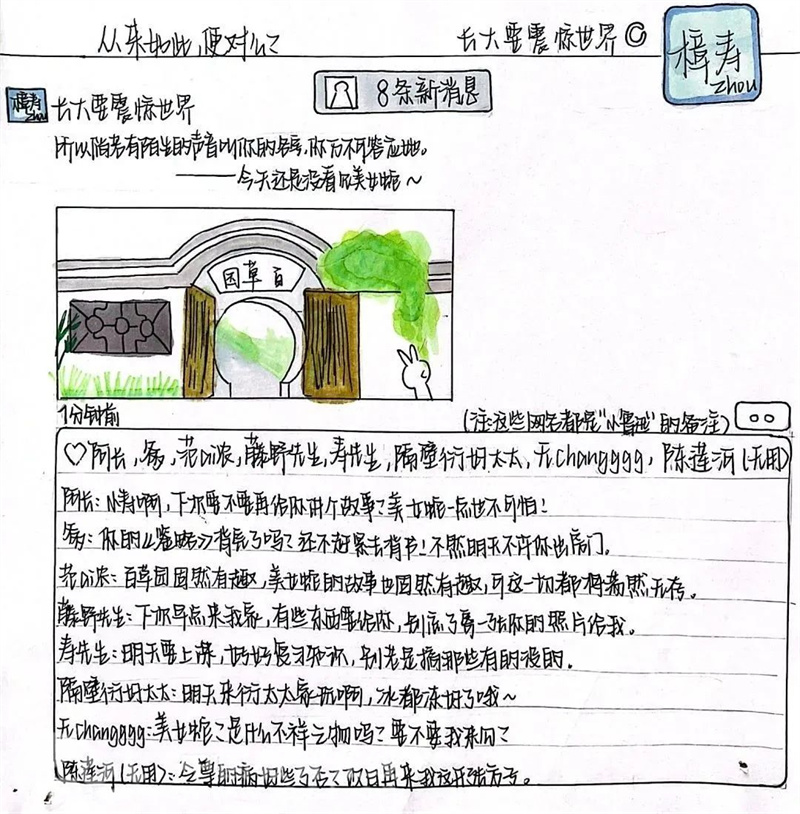 从来如此,便对么?
长大要震惊世界
樟寿
zhou
8条新消息
樟寿
zhou
长大要震惊世界
所以倘若有陌生的声音叫你的名字,你万不可答应他。
——今天还是没看见美女蛇~
百草园
1分钟前
(注:这些网名都是“小鲁迅”的备注)
♡阿长,爹,范ai农,藤野先生,寿先生,隔壁衍太太,无changggg,陈莲河(无用)
阿长:小寿啊,下次要不要再给你讲个故事?美女蛇一点也不可怕!
爹:你的《鉴略》背完了吗?还不赶紧去背书!不然明天不许你出房门。
范ai农:百草园固然有趣,美女蛇的故事也固然有趣,可这一切都将荡然无存。
藤野先生:下次早点来我家,有些东西要给你,别忘了寄一张你的照片给我。
寿先生:明天要上课,好好复习知识,别老是搞那些有的没的。
隔壁衍太太:明天来衍太太家玩啊,冰都冻好了哦~
无changggg:美女蛇?是什么不祥之物吗?要不要我来勾?
陈莲河(无用):令尊的病好些了否?改日再来我这开张方子。